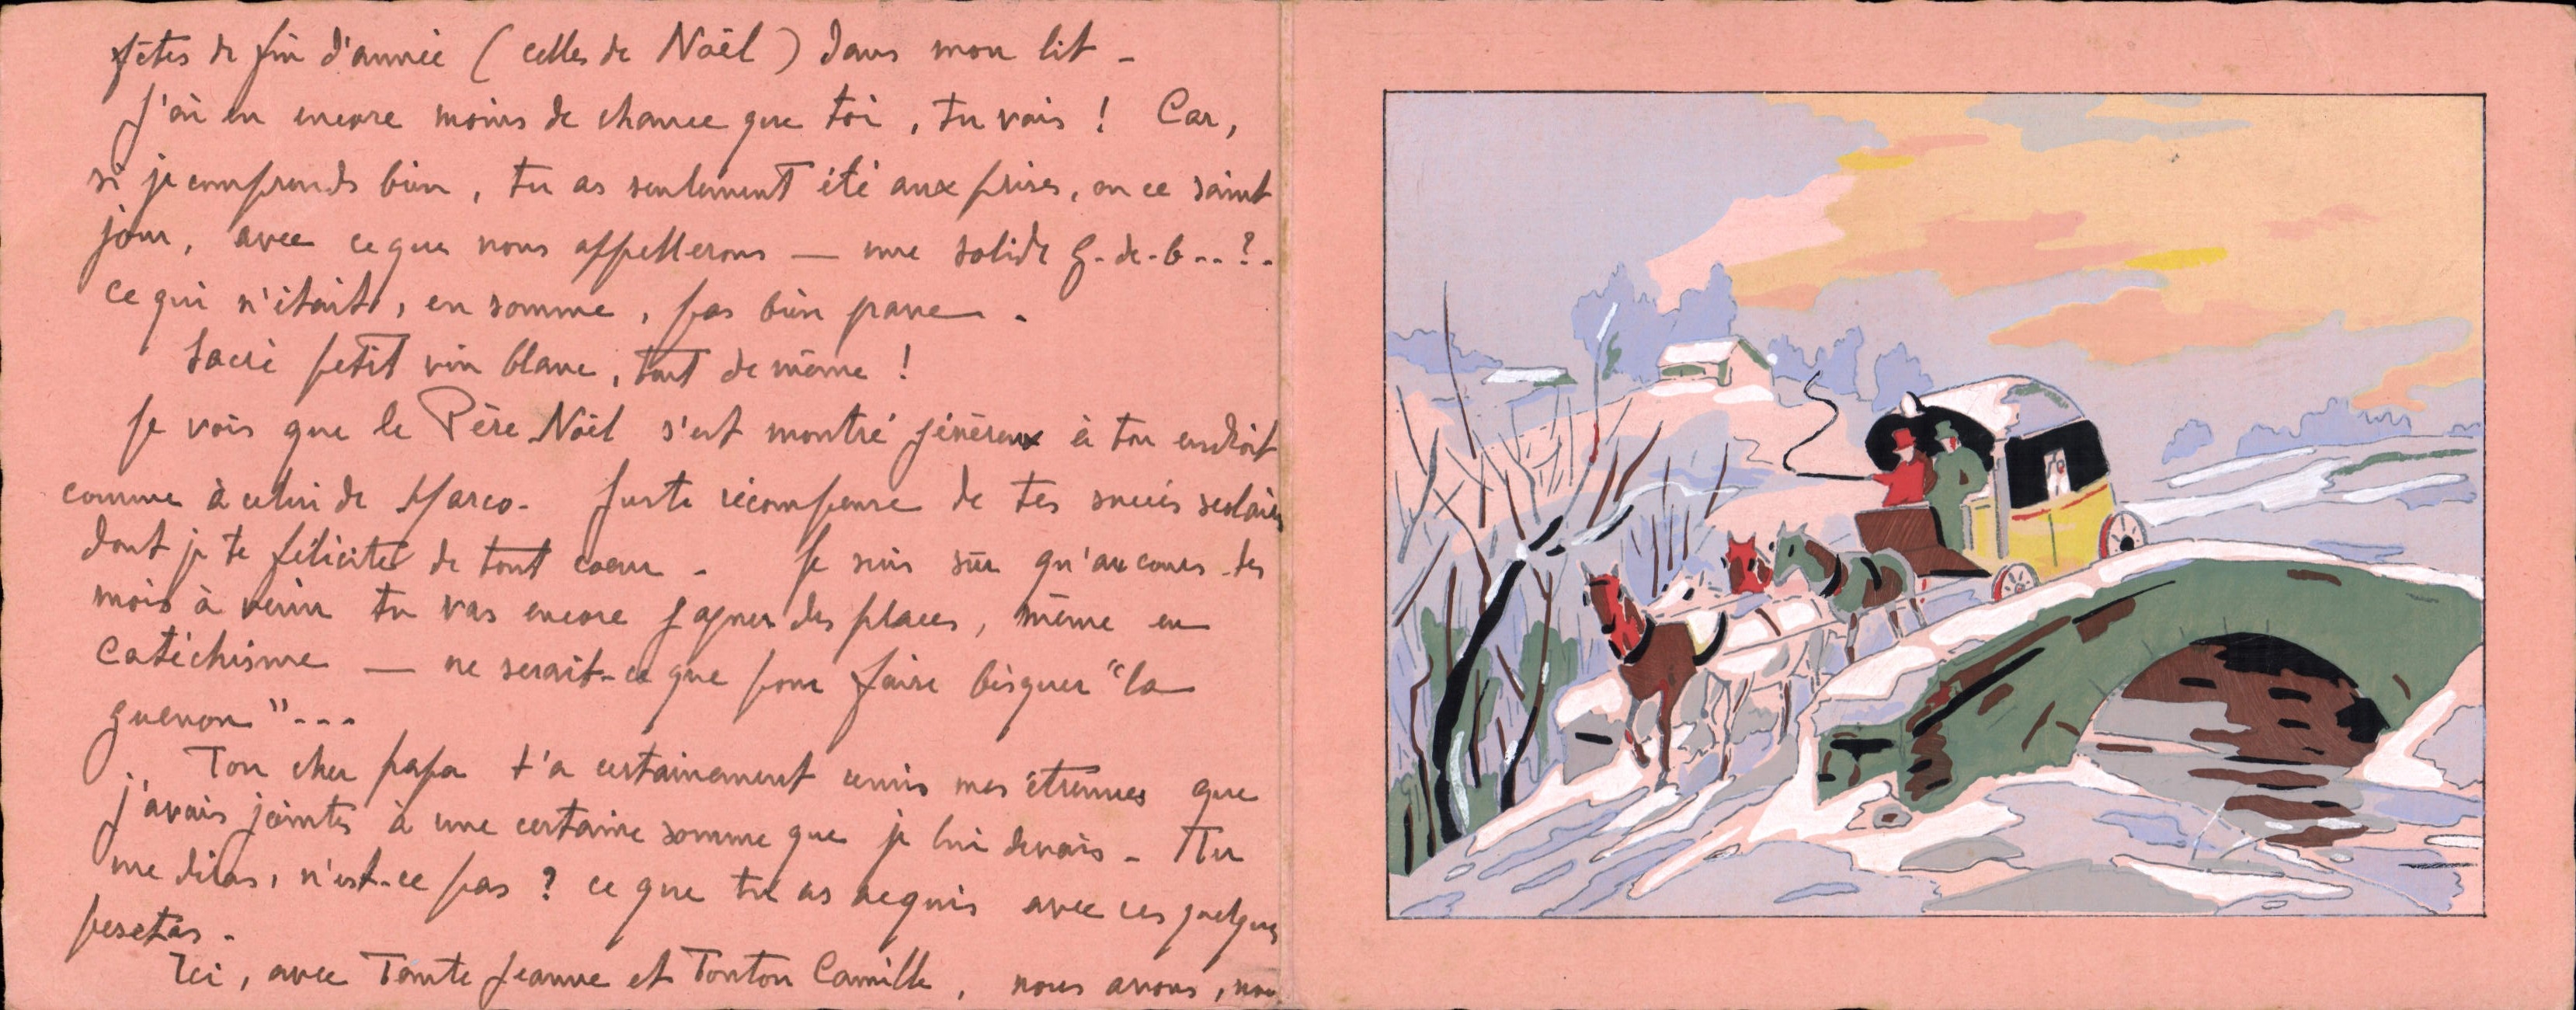 fêtes de fin d'année (celles de Noël) dans mon lit -
J'ai eu encore moins de chance que toi, tu vois ! Car,
si je comprends bien, tu as seulement été aux prises, en ce saint
jour, avec ce que nous appellerons — une solide G.-de-b...?.
Ce qui n'était, en somme, pas bien grave.
Sacré petit vin blanc, tout de même !
Je vois que le Père Noël s'est montré généreux à ton endroit
comme à celui de Marco. Juste récompense de tes succès scolaires
dont je te félicite de tout coeur - Je suis sûr qu'au cours des
mois à venir tu vas encore gagner des places, même en
Catéchisme — ne serait-ce que pour faire bisquer "la
guenon"---
Ton cher papa t'a certainement remis mes étrennes que
j'avais jointes à une certaine somme que je lui devais - Tu
me diras, n'est-ce pas ? ce que tu as acquis avec ces quelques
pesetas -
Ici, avec Tante Jeanne et Tonton Camille, nous avons, nou